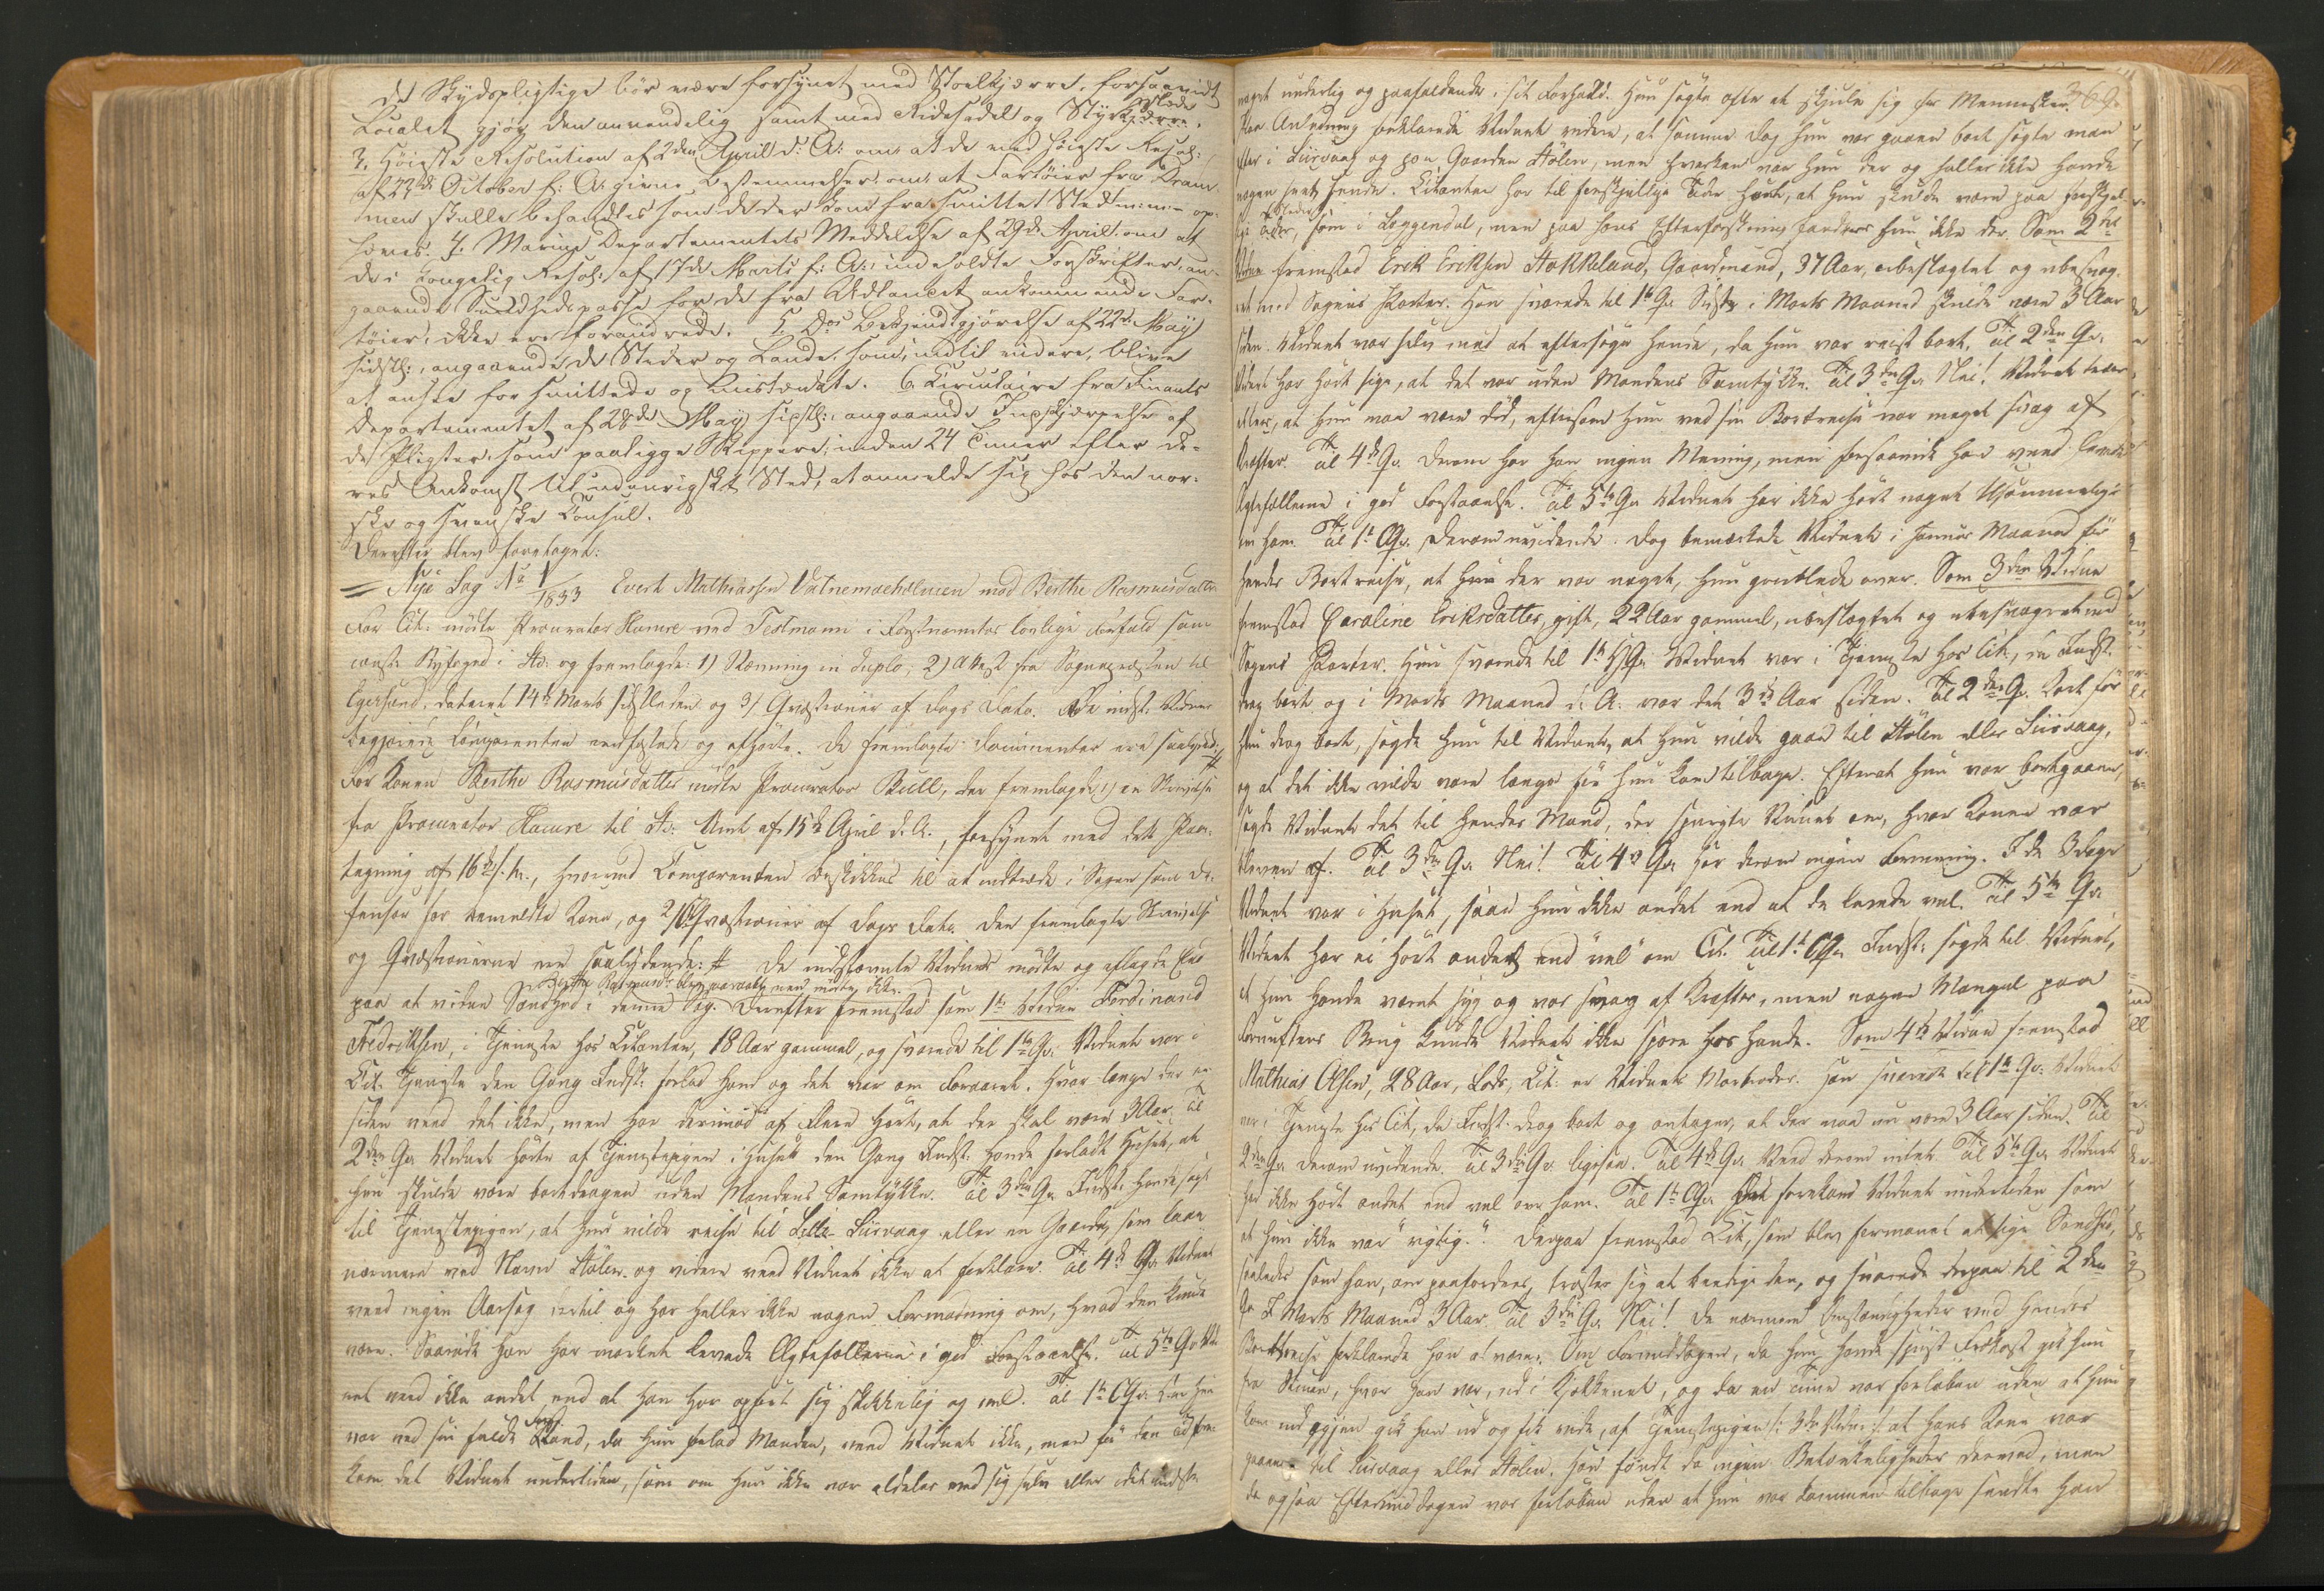 de Skydspligtige bör være forsynet med Stoelkjærre, forsaavidt
Localet gjör den anvendelig samt med Ridesadel og Styrkjærre.
3. Höieste Resolution af 2den April d: A: om at de ved höieste Resol:
af 23de October f: A: givne Bestemmelser, om at Fartöier fra Dram-
men skulle behandles som de der kom fra smittet Sted op-
hæves. 4. Marine Departementets Meddelelse af 29de April om at
de i kongelig Resol: af 17de Marts f: A: indeholdte Forskrifter, an-
gaaende Sundhedspasse for de fra Udlandet ankommende Far-
töier, ikke ere forandrede. 5. Do's Bekjendtgjörelse af 22de May
sidstl:, angaaende de Steder og Lande, som, indtil videre, blive
at ansee for smittede og mistænkte. 6. Circulaire fra Finants
Departementet af 28de May sidstl:, angaaende Indskjærpelse af
de Pligter, som paaligge Skippere, inden 24 Timer efter de-
res Ankomst til udenrigskt Sted, at anmelde sig hos den nor-
ske og svenske Consul.
Derefter blev foretaget:
Nye Sag No 1/1833 Evert Mathiassen Vatnemoeholmen mod Berthe Rasmusdatter
For Cit: mödte Procurator Haure ved Testmann i Förstnævntes lovlige Forfald som
const: Byfoged i St: og fremlagde: 1) Stævning in duplo, 2) Attest fra Sognepresten til
Egersund, dateret 14de Marts sidstleden og 3) Qvæstioner af Dags Dato. De indst: Vidner
begjærede Comparenten eedfæstede og afhörte. De fremlagte Documenter ere saalyd:
For Konen Berthe Rasmusdatter mödte Procurator Bull, der fremlagde 1) en Skrivelse
fra Procurator Haure til St: Amt af 15de April d. A., forsynet med dets Paa-
tegning af 16de s. M., hvorved Comparenten beskikkes til at indtræde i Sagen som De-
fensor for bemeldte Kone, og 2) Qvæstioner af Dags Dato. Den fremlagte Skrivelse
og Qvæstionerne ere saalydende: # De indstævnte Vidner mödte og aflagde Eed
Berthe Rasmusd: blev paaraabt men mödte ikke.
paa at vidne Sandhed i denne Sag. Derefter fremstod som 1te Vidne Ferdinand
Fredriksen, i Tjeneste hos Citanten, 18 Aar gammel, og svarede til 1te Qv: Vidnet var i
Cit: Tjeneste den Gang Indst: forlod ham og det var om Foraaret. Hvor længe der er
siden veed det ikke, men har derimod af Flere hört, at der skal være 3 Aar. Til
2den Qv: Vidnet hörte af Tjenestepigen i Huset den Gang Indst: havde forladt Huset, at
hun skulde være bortdragen uden Mandens Samtykke. Til 3die Qv: Indst: havde sagt
til Tjenestepigen, at hun vilde reise til Lille-Liirvaag eller en Gaard, som laae
nærmere ved Navn Hölen og videre veed Vidnet ikke at forklare. Til 4de Qv: Vidnet
veed ingen Aarsag dertil og har heller ikke nogen Formodning om, hvad den kunde
være. Saavidt han har mærket levede Ægtefolkene i god Forstaaelse. Til 5te Qv: Vid-
net veed ikke andet end at han har opfört sig skikkelig og vel. Til 1te CQv: Om hun
var ved sin fulde Forstand, da hun forlod Manden, veed Vidnet ikke, men för den Tid fore-
kom det Vidnet undertiden, som om hun ikke var aldeles ved sig selv eller det viste
369.
noget underlig og paafaldende i sit Forhold. Hun sögte ofte at skjule sig for Mennesker.
Paa Anledning forklarede Vidnet videre, at samme Dag hun var gaaen bort sögte man
efter i Liirvaag og paa Gaarden Hölen, men hverken var hun der og heller ikke havde
nogen seet hende. Citanten har til forskjellige Tider hört, at hun skulde være paa forskjel-
lige Steder, som i Loggendal, men paa hans Efterforskning fandtes hun ikke der. Som 2det
Vidne fremstod Erik Eriksen Stokkeland, Gaardmand, 37 Aar, ubeslægtet og ubesvog-
ret med Sagens Parter. Han svarede til 1te Qv: Sidste i Marts Maaned skulde være 3 Aar
siden. Vidnet var selv med at eftersöge hende, da hun var reist bort. Til 2den Qv:
Vidnet har hört sige, at det var uden Mandens Samtykke. Til 3die Qv: Nei! Vidnet troer
ellers, at hun maa være död, eftersom hun ved sin Bortreise var meget svag af
Kræfter. Til 4de Qv: Derom har han ingen Mening, men forsaavidt han veed levede
Ægtefolkene i god Forstaaelse. Til 5te Qv: Vidnet har ikke hört noget Usömmeligt
om ham. Til 1te CQv: Derom uvidende. Dog bemærkede Vidnet i Januar Maaned för
hendes Bortreise, at hun der var noget, hun grublede over. Som 3die Vidne
fremstod Caroline Eriksdatter, gift, 22 Aar gammel, ubeslægtet og ubesvogret med
Sagens Parter. Hun svarede til 1te HQv: Vidnet var i Tjeneste hos Cit:, da Indst:
drog bort og i Marts Maaned d: A: var det 3de Aar siden. Til 2den Qv: Kort för
hun drog bort, sagde hun til Vidnet, at hun vilde gaae til Hölen eller Liirvaag,
og at det ikke vilde være længe för hun kom tilbage. Efterat hun var bortgaaen,
sagde Vidnet det til hendes Mand, der spurgte Vidnet om, hvor Konen var
bleven af. Til 3die Qv: Nei! Til 4de Qv: har derom ingen Formening. I de 3 Dage
Vidnet var i Huset, saae hun ikke andet end at de levede vel. Til 5te Qv:
Vidnet har ei hört andet end "vel" om Cit: Til 1te CQv: Indst: sagde til Vidnet,
at hun havde været syg og var svag af Kræfter, men nogen Mangel paa
Fornuftens Brug kunde Vidnet ikke spore hos hende. Som 4de Vidne fremstod
Mathias Olsen, 28 Aar, Lods, Cit: er Vidnets Morbroder. Han svarede til 1te Qv: Vidnet
var i Tjeneste hos Cit:, da Indst: drog bort og antager, at der maa nu være 3 Aar siden. Til
2den Qv: Derom uvidende. Til 3die Qv: ligesaa. Til 4de Qv: Veed derom intet. Til 5te Qv: Vidnet
har ikke hört andet end vel om ham. Til 1te CQv: Det forekom Vidnet undertiden som
at hun ikke var "rigtig." Derpaa fremstod Cit:, som blev formanet at sige Sandhed,
saaledes som han, om paafordres, tröster sig at beedige den, og svarede derpaa til 2den
Qv: I Marts Maaned 3 Aar. Til 3die Qv: Nei! De nærmere Omstændigheder ved hendes
Bortreise forklarede han at være: Om Formiddagen, da hun havde spiist Frokost gik hun
fra Stuen, hvor han var, ud i Kjökkenet, og da en Time var forlöben uden at hun
kom ind igjen gik han ud og fik vide, af Tjenestepigen /: 3die Vidne :/ at hans Kone var
gaaen til Liirvaag eller Hölen. Han fandt da ingen Betænkeligheder derved, men
da ogsaa Eftermiddagen var forlöben uden at hun var kommen tilbage sendte han